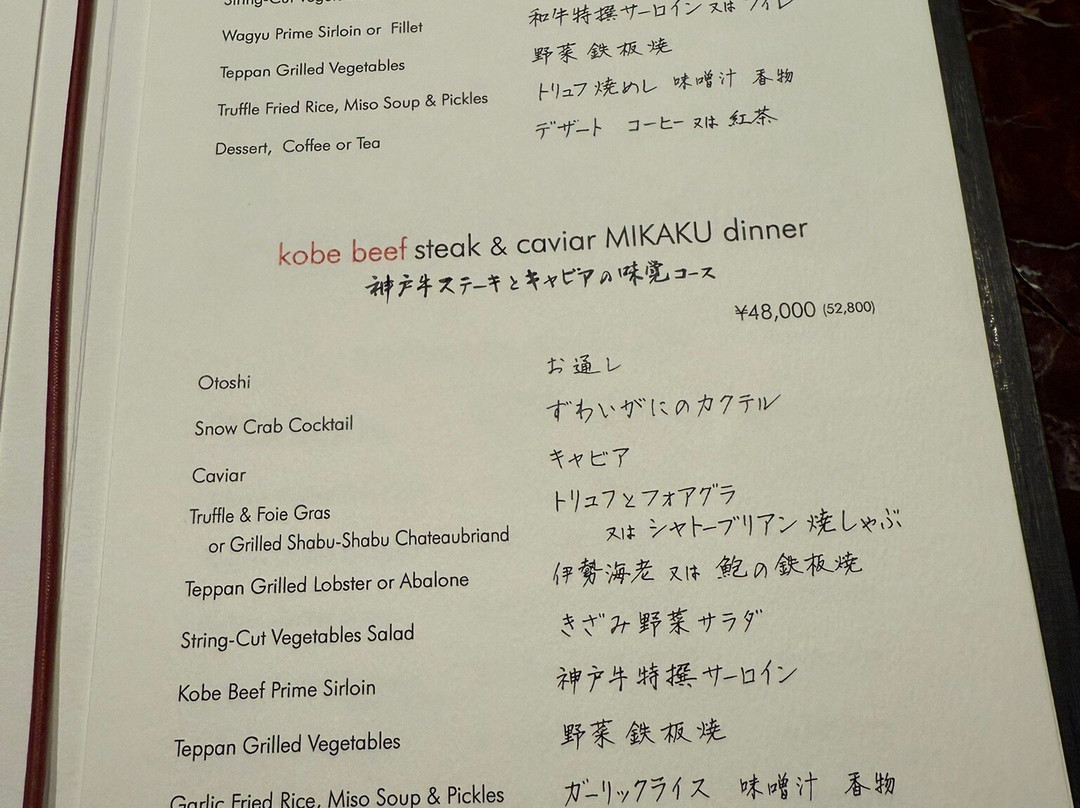 String-Cut
和牛特撰サーロイン 又は フィレ
Wagyu Prime Sirloin or Fillet
野菜 鉄板焼
Teppan Grilled Vegetables
トリュフ焼めし 味噌汁 香物
Truffle Fried Rice, Miso Soup & Pickles
デザート コーヒー又は紅茶
Dessert, Coffee or Tea
kobe beef steak & caviar MIKAKU dinner
神戸牛ステーキとキャビアの味覚コース
¥48,000 (52,800)
Otoshi
お通し
Snow Crab Cocktail
ずわいがにのカクテル
Caviar
キャビア
Truffle & Foie Gras
トリュフとフォアグラ
or Grilled Shabu-Shabu Chateaubriand
又は シャトーブリアン 焼しゃぶ
Teppan Grilled Lobster or Abalone
伊勢海老 又は 鮑の鉄板焼
String-Cut Vegetables Salad
きざみ野菜サラダ
Kobe Beef Prime Sirloin
神戸牛特撰サーロイン
Teppan Grilled Vegetables
野菜 鉄板焼
Garlic Fried Rice, Miso Soup & Pickles
ガーリックライス 味噌汁 香物